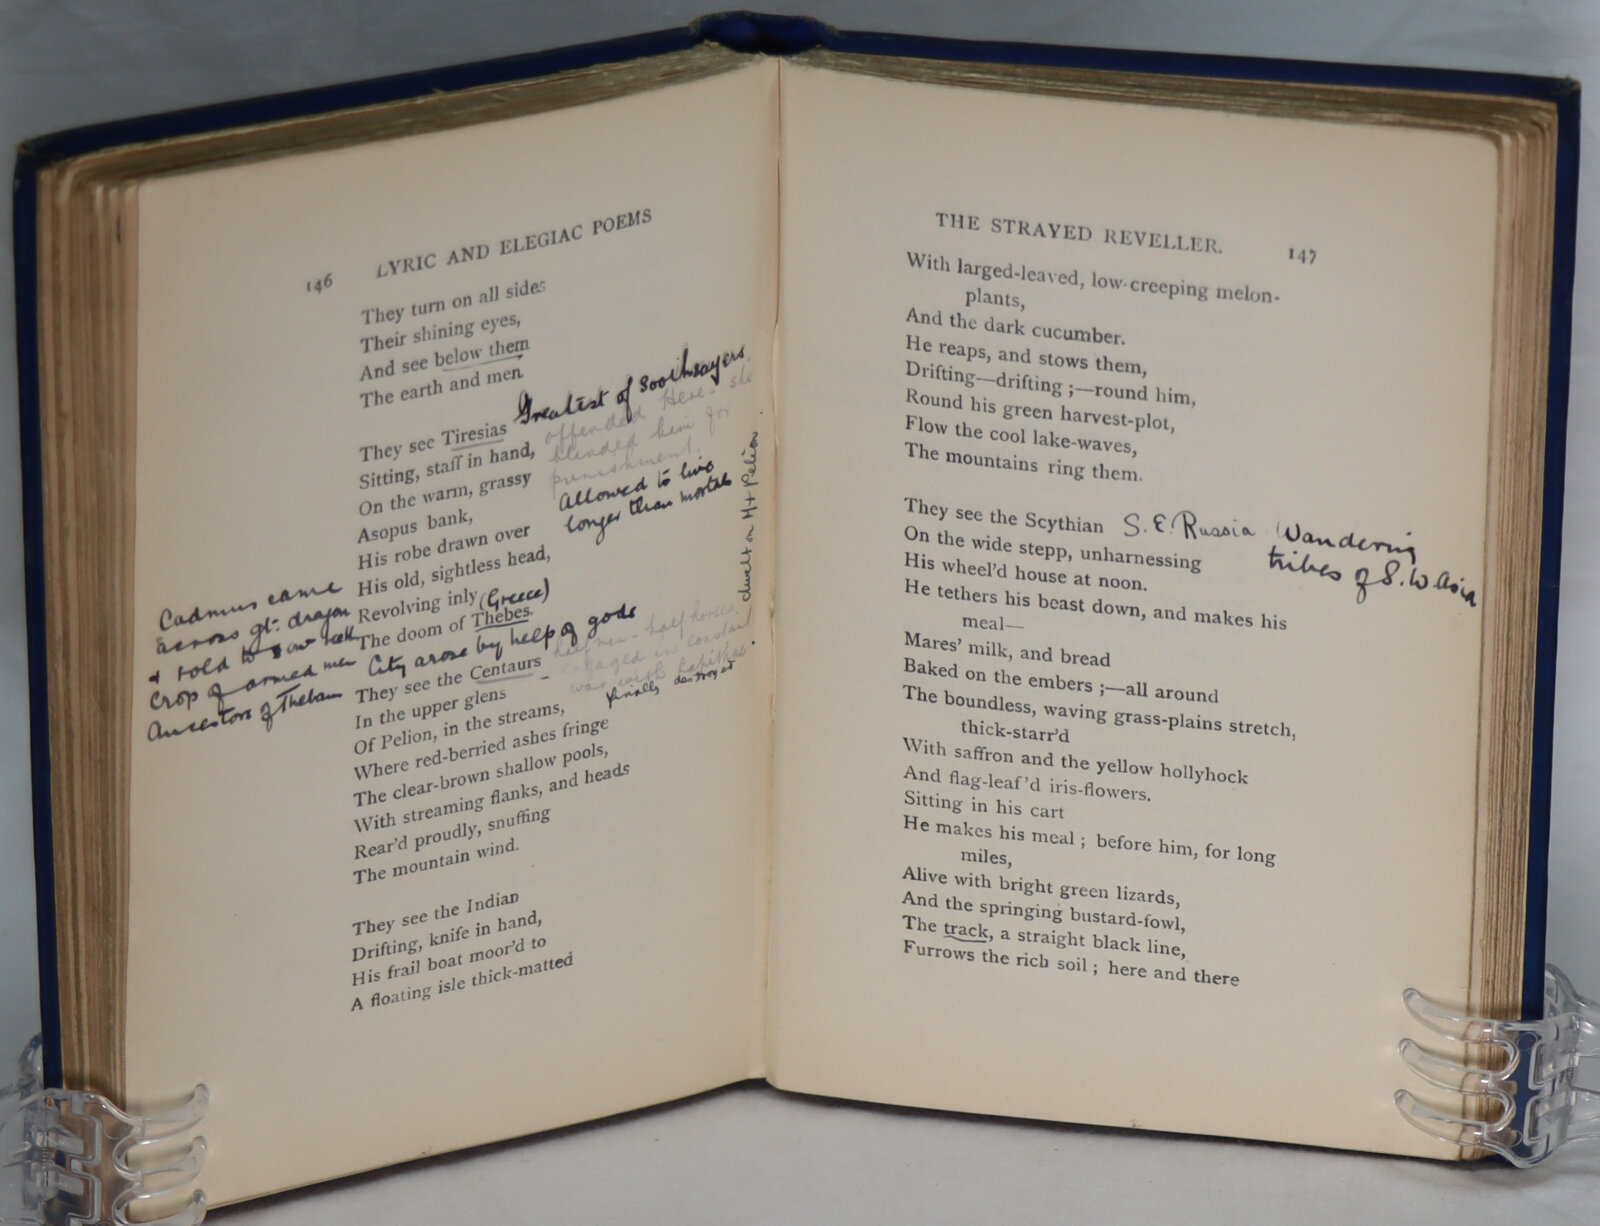 146 LYRIC AND ELEGIAC POEMS
They turn on all sides
Their shining eyes,
And see below them
The earth and men.
They see Tiresias Greatest of soothsayers
Sitting, staff in hand, offended Here - she
On the warm, grassy blinded him for
punishment.
Asopus bank, Allowed to live
His robe drawn over longer than mortals
His old, sightless head,
Revolving inly (Greece)
The doom of Thebes.
City arose by help of gods
Cadmus came
across gt. dragon
& told to sow teeth
Crop of armed men
Ancestors of Thebans
dwelt on Mt Pelion.
They see the Centaurs half men - half horses.
In the upper glens - engaged in constant
war with Lapithae
finally destroyed
Of Pelion, in the streams,
Where red-berried ashes fringe
The clear-brown shallow pools,
With streaming flanks, and heads
Rear'd proudly, snuffing
The mountain wind.
They see the Indian
Drifting, knife in hand,
His frail boat moor'd to
A floating isle thick-matted
THE STRAYED REVELLER. 147
With larged-leaved, low-creeping melon-
plants,
And the dark cucumber.
He reaps, and stows them,
Drifting—drifting ;—round him,
Round his green harvest-plot,
Flow the cool lake-waves,
The mountains ring them.
They see the Scythian S. E. Russia Wandering
tribes of S. W Asia
On the wide stepp, unharnessing
His wheel'd house at noon.
He tethers his beast down, and makes his
meal—
Mares' milk, and bread
Baked on the embers ;—all around
The boundless, waving grass-plains stretch,
thick-starr'd
With saffron and the yellow hollyhock
And flag-leaf'd iris-flowers.
Sitting in his cart
He makes his meal ; before him, for long
miles,
Alive with bright green lizards,
And the springing bustard-fowl,
The track, a straight black line,
Furrows the rich soil ; here and there